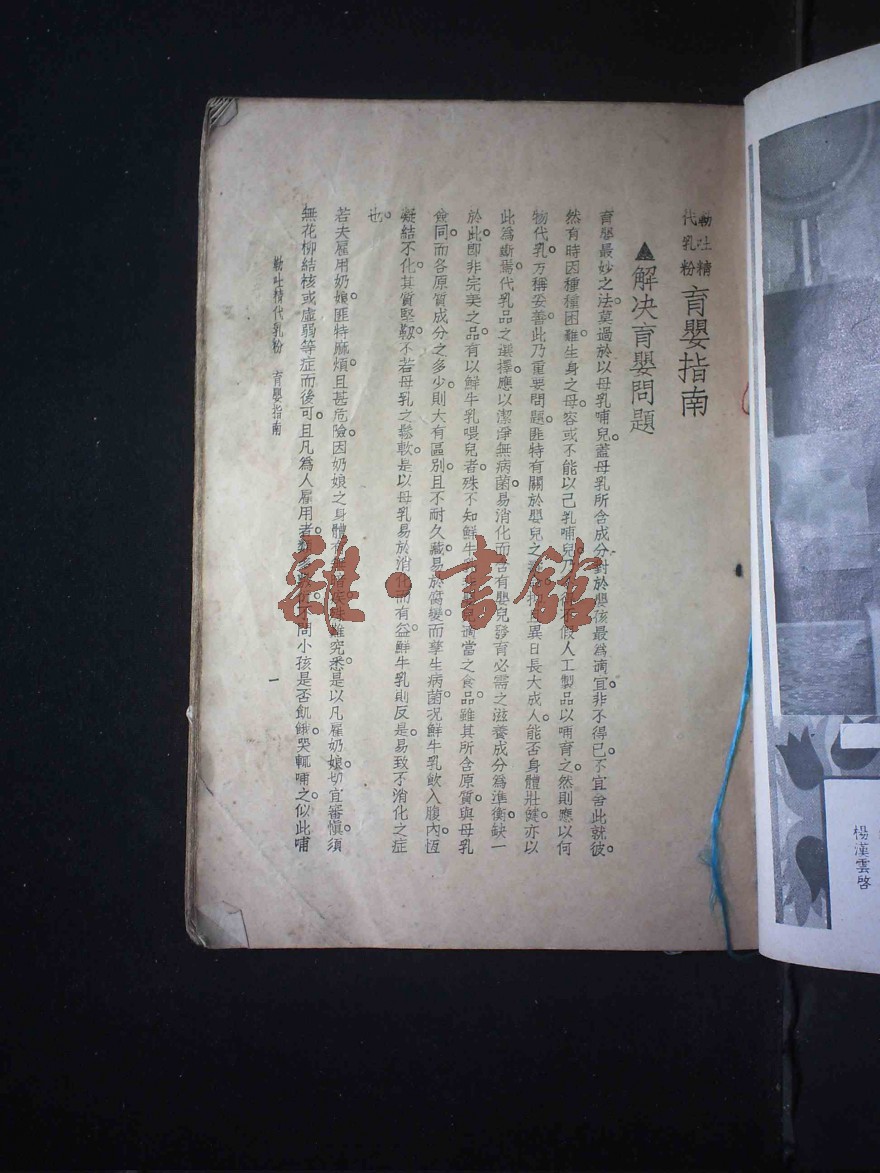 勒吐精代乳粉 育嬰指南
▲解決育嬰問題
育嬰最妙之法。莫過於以母乳哺兒。蓋母乳所含成分。對於嬰孩最為適宜。非不得已。不宜舍此就彼。
然有時因種種困難。生身之母。容或不能以己乳哺兒。乃假人工製品以哺育之。然則應以何
物代乳。方稱妥善。此乃重要問題。匪特有關於嬰兒之異日長大成人。能否身體壯健。亦以
此為斷焉。代乳品之選擇。應以潔淨無病菌。易消化。而含有嬰兒發育必需之滋養成分為準衡。缺一
於此。即非完美之品。有以鮮牛乳喂兒者。殊不知鮮牛適當之食品。雖其所含原質。與母乳
僉同。而各原質成分之多少。則大有區別。且不耐久藏。易於腐變。而孳生病菌。况鮮牛乳飲入腹內。恆
凝結不化。其質堅韌。不若母乳之鬆軟。是以母乳易於消化而有益。鮮牛乳則反是。易致不消化之症
也。
若夫雇用奶娘。匪特麻煩。且甚危險。因奶娘之身體有究悉。是以凡雇奶娘。切宜審愼。須
無花柳結核或虛弱等症而後可。且凡為人雇用者。問小孩是否飢餓。哭輒哺之。似此哺
勒吐精代乳粉 育嬰指南
一
雜·書館
楊漢雲啓